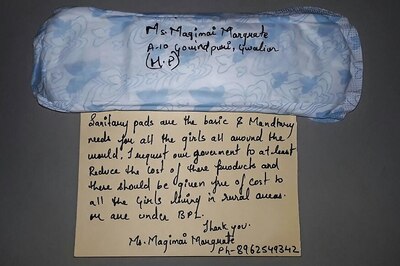 Ms. Magimai Margrate
A-10 Govindpuri, Gwalior
(M.P)
Sanitary pads are the basic & Mandtary
needs for all the girls all around the
world. I request our goverment to at least
Reduce the cost of these products and
there should be given free of cost to
all the Girls living in rural areas
or are under BPL.
Thank you.
Ms. Magimai Margrate
Ph-8962549342